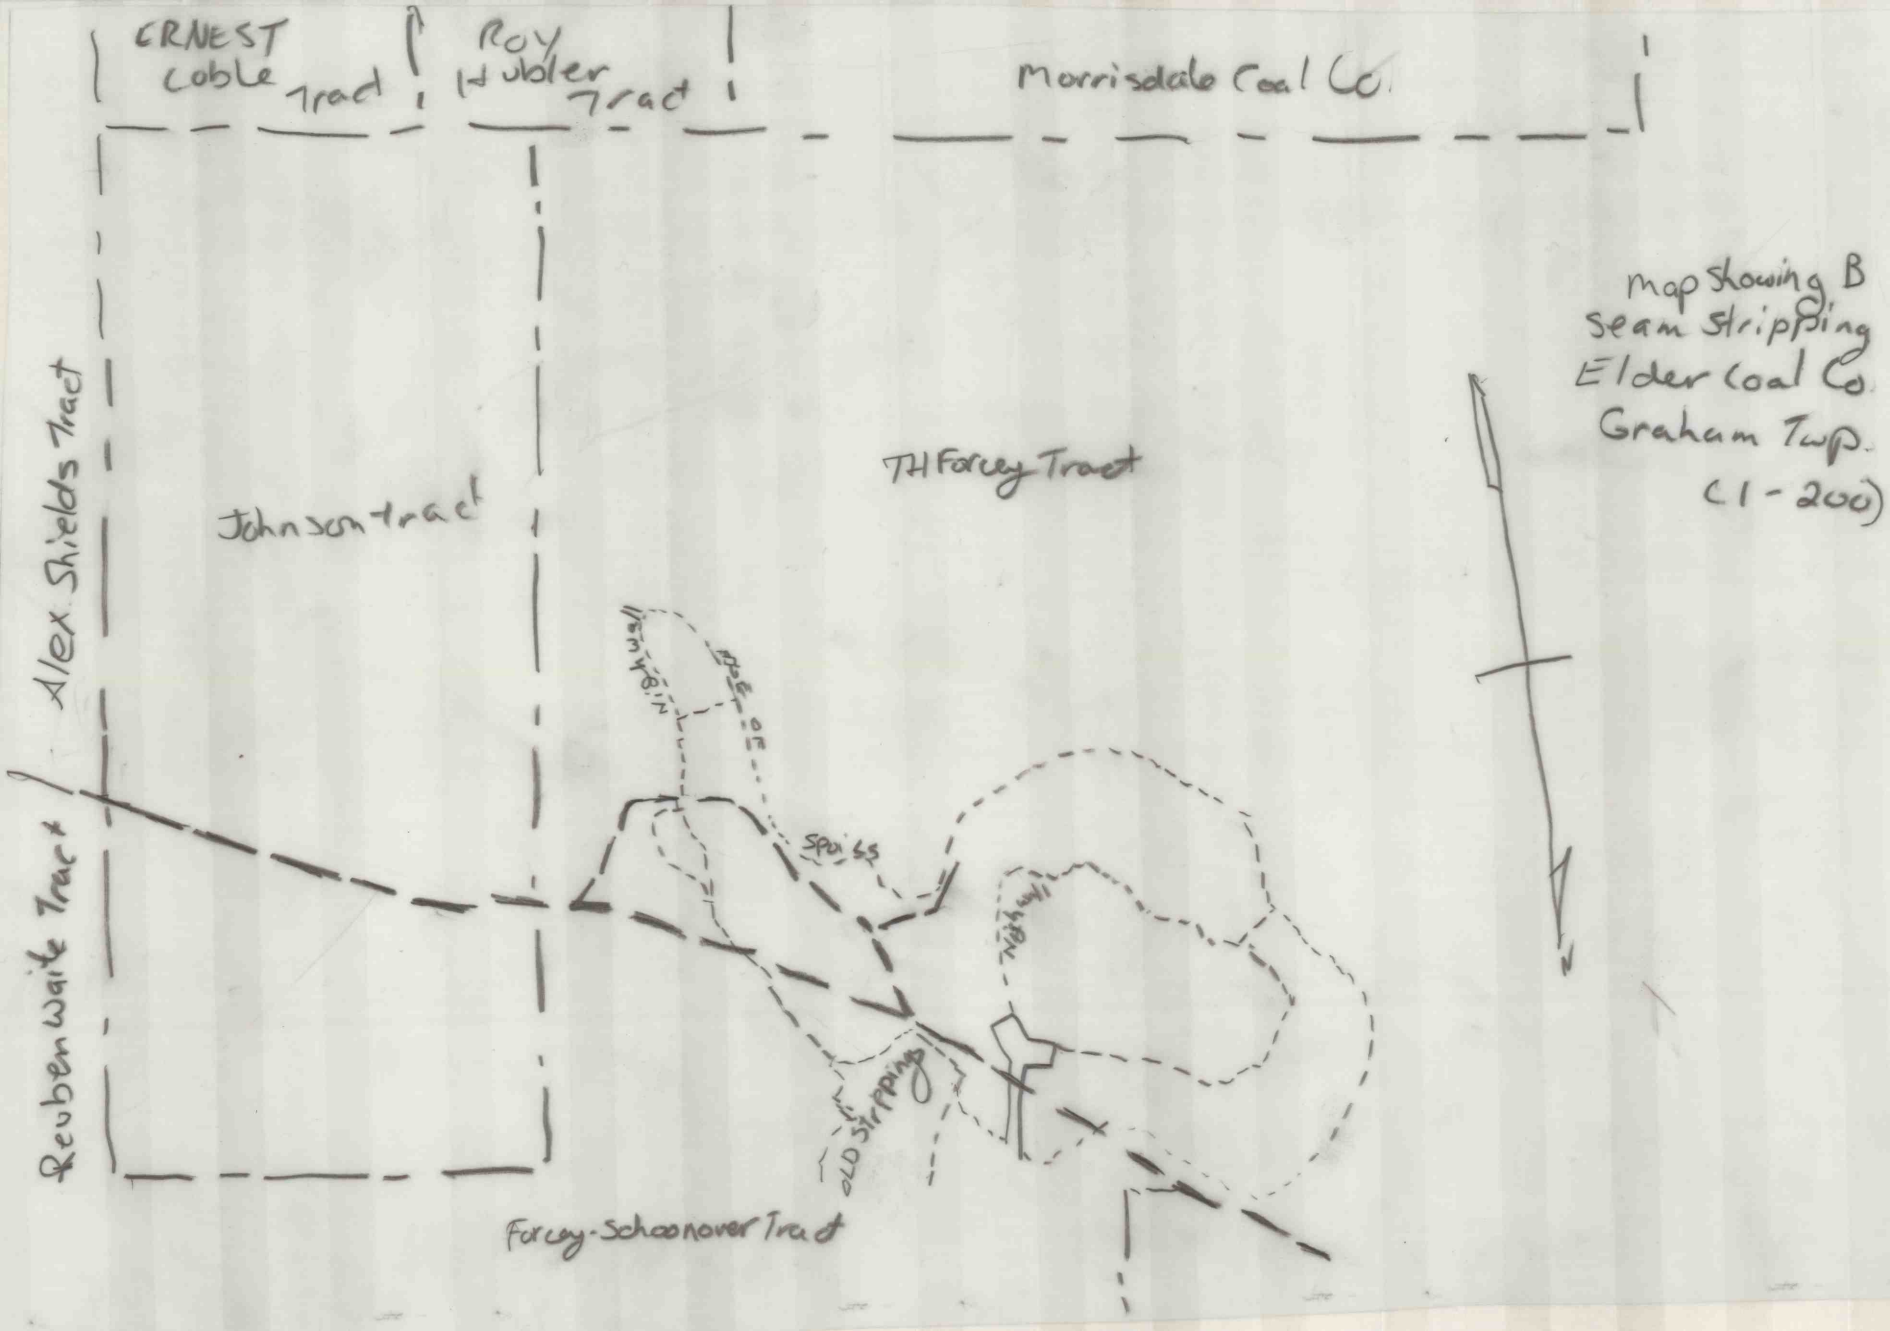 ERNEST
Coble
Tract
Roy
Hubler
Tract
Morrisdale Coal Co.
map showing B
seam stripping
Elder Coal Co.
Graham Twp.
(1-200)
Alex. Shields Tract
Johnson tract
TH Forcey Tract
Highwall
Spoils
Reuben Waite Tract
OLD Strippings
Forcey-Schoonover Tract
N